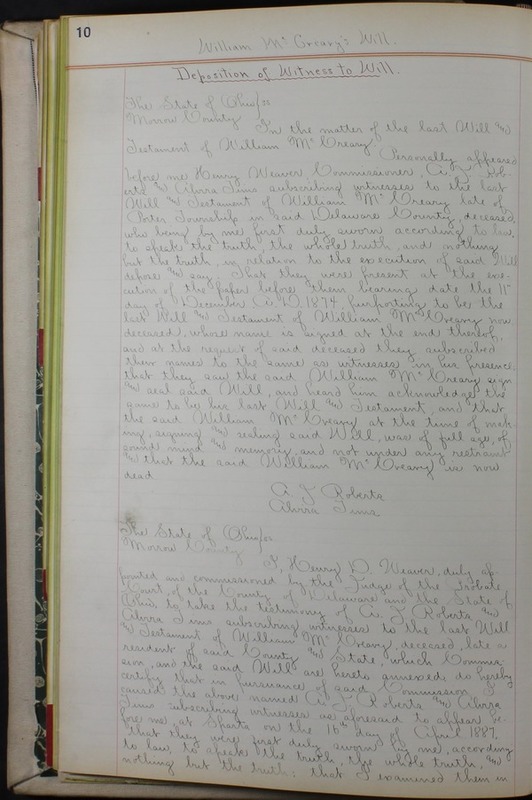 10
William McCreary's Will.
Deposition of Witness to Will.
The State of Ohio } ss
Morrow County
In the matter of the last Will and
Testament of William McCreary
Personally appeared
before me Henry Weaver Commissioner, A. J. Rob-
erts and Alvira Sims subscribing witnesses to the last
Will and Testament of William McCreary late of
Porter Township in said Delaware County, deceased,
who being by me first duly sworn according to law,
to speak the truth, the whole truth, and nothing
but the truth, in relation to the execution of said Will
depose and say: That they were present at the exe-
cution of the paper before them bearing date the 11"
day of December A. D. 1874, purporting to be the
last Will and Testament of William McCreary now
deceased, whose name is signed at the end thereof,
and at the request of said deceased they subscribed
their names to the same as witnesses in his presence;
that they saw the said William McCreary sign
and seal said Will, and heard him acknowledge the
same to be his last Will and Testament, and that
the said William McCreary at the time of mak-
ing, signing and sealing said Will, was of full age, of
sound mind and memory, and not under any restraint
and that the said William McCreary is now
dead
A J Roberts
Alvira Sims
The State of Ohio } ss.
Morrow County
I, Henry D. Weaver, duly ap-
pointed and commissioned by the Judge of the Probate
Court of the County of Delaware and the State of
Ohio, to take the testimony of A. J. Roberts and
Alvira Sims subscribing witnesses to the last Will
and Testament of William McCreary, deceased, late a
resident of said County and State, which Commis-
sion, and the said Will are hereto annexed do hereby
certify that in pursuance of said Commission, I
caused the above named A. J. Roberts and Alvira
Sims subscribing witnesses as aforesaid to appear be-
fore me, at Sparta on the 16th day of April 1887,
that they were first duly sworn by me, according
to law, to speak the truth, the whole truth, and
nothing but the truth; that I examined them in